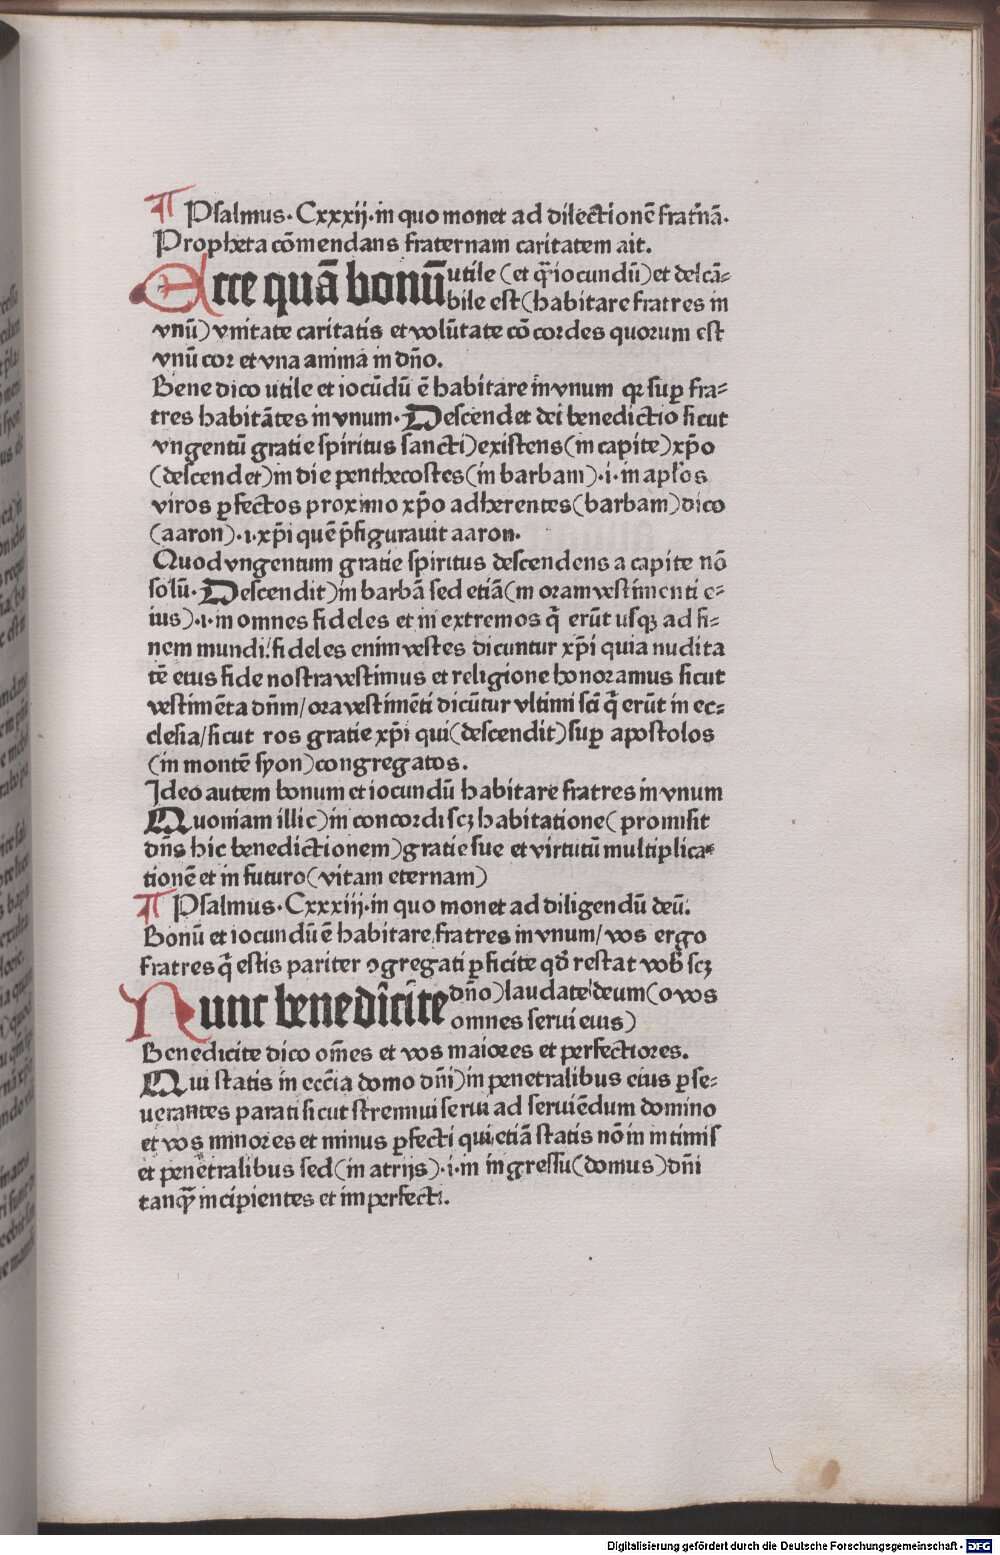 ¶ Psalmus. Cxxxij. in quo monet ad dilectionē frat̄nā.
Propheta cōmendans fraternam caritatem ait.
Ecce quā bonū utile (et q̄ iocundū) et delcā-
bile est (habitare fratres in
vnū) vnitate caritatis et volūtate cōcordes quorum est
vnū cor et vna anima in dn̄o.
Benedico utile et iocūdū ē habitare in vnum qꝛ suꝑ fra-
tres habitātes in vnum. Descendet dei benedictio sicut
vngentū gratie spiritus sancti) existens (in capite) xp̄o
(descendet) in die penthecostes (in barbam) .i. in apl'os
viros ꝑfectos proximo xp̄o adherentes (barbam) dico
(aaron) .i. xp̄i quē p̄figurauit aaron.
Quod vngentum gratie spiritus descendens a capite nō
solū. Descendit) in barbā sed etiā (in oram vestimenti e-
ius) .i. in omnes fideles et in extremos q̄ erūt usqꝫ ad fi-
nem mundi / fideles enim vestes dicuntur xp̄i quia nudita
tē eius fide nostra vestimus et religione honoramus sicut
vestimēta dn̄m / ora vestimēti dicūtur vltimi sc̄i q̄ erūt in ec-
clesia / sicut ros gratie xp̄i qui (descendit) suꝑ apostolos
(in montē syon) congregatos.
Ideo autem bonum et iocundū habitare fratres in vnum
Quoniam illic) in concordi scꝫ habitatione (promisit
dn̄s hic benedictionem) gratie sue et virtutū multiplica-
tionē et in futuro (vitam eternam)
¶ Psalmus. Cxxxiij. in quo monet ad diligendū deū.
Bonū et iocundū ē habitare fratres in vnum / vos ergo
fratres q̄ estis pariter ꝯgregati ꝑficite qd̄ restat vob̄ scꝫ
Nunc benedicite dn̄o) laudate deum (o vos
omnes serui eius)
Benedicite dico om̄es et vos maiores et perfectiores.
Qui statis in ecc̄ia domo dn̄i) in penetralibus eius ꝑse-
uerantes parati sicut strennui serui ad seruiēdum domino
et vos minores et minus ꝑfecti qui etiā statis nō in intimis
et penetralibus sed (in atrijs) .i. in ingressu (domus) dn̄i
tanꝙ̄ incipientes et imperfecti.
Digitalisierung gefördert durch die Deutsche Forschungsgemeinschaft - DFG